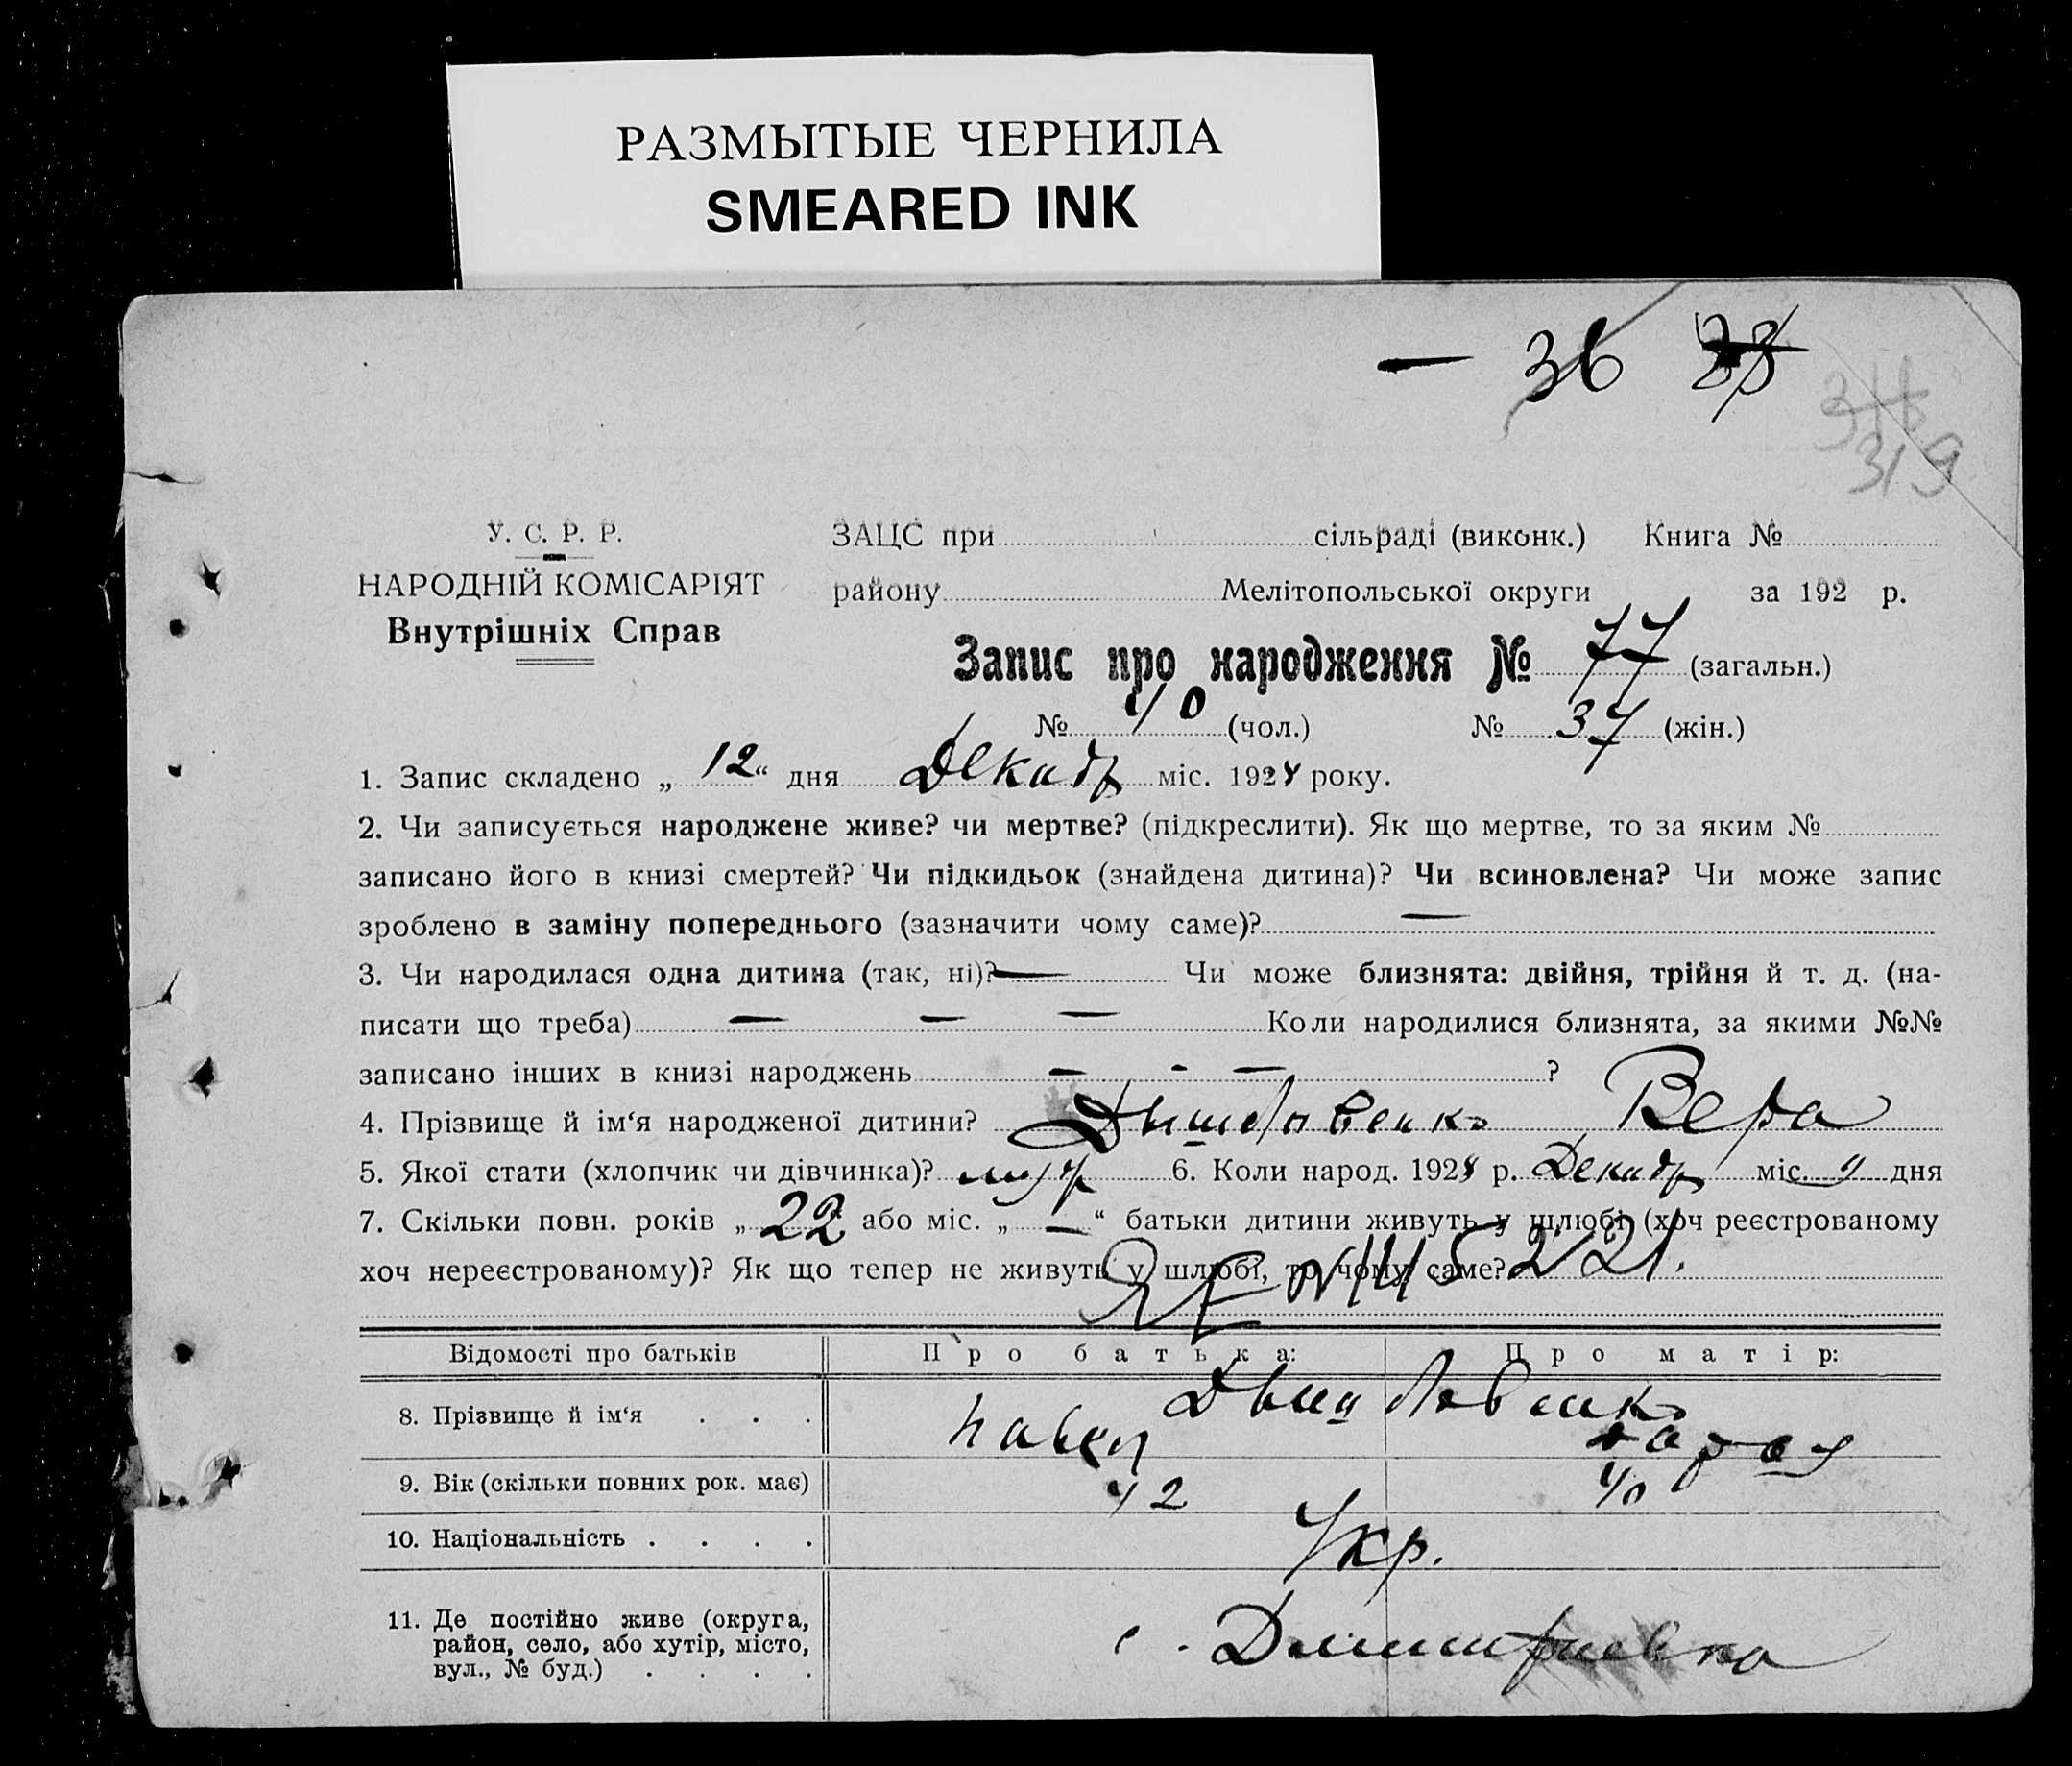 РАЗМЫТЫЕ ЧЕРНИЛА
SMEARED INK
— 36 28
316
319
У. С. Р. Р.
НАРОДНІЙ КОМІСАРІЯТ
Внутрішніх Справ
ЗАЦС при сільраді (виконк.) Книга №
району Мелітопольської округи за 192 р.
Запис про народження № 77 (загальн.)
№ 40 (чол.) № 37 (жін.)
1. Запис складено „ 12 “ дня Декабр міс. 1924 року.
2. Чи записується народжене живе? чи мертве? (підкреслити). Як що мертве, то за яким №
записано його в книзі смертей? Чи підкидьок (знайдена дитина)? Чи всиновлена? Чи може запис
зроблено в заміну попереднього (зазначити чому саме)? —
3. Чи народилася одна дитина (так, ні)? — Чи може близнята: двійня, трійня й т. д. (на-
писати що треба) — — — Коли народилися близнята, за якими №№
записано інших в книзі народжень — - — ?
4. Прізвище й ім‘я народженої дитини? Вера
5. Якої стати (хлопчик чи дівчинка)? 6. Коли народ. 1924 р. Декабр міс. 9 дня
7. Скільки повн. років „ 22 “ або міс. „ — “ батьки дитини живуть у шлюбі (хоч реєстрованому
хоч нереєстрованому)? Як що тепер не живуть у шлюбі, то чому саме?
Відомості про батьків Про батька: Про матір:
8. Прізвище й ім‘я . . . Павел
9. Вік (скільки повних рок. має) 42 40
10. Національність . . . . Укр.
11. Де постійно живе (округа, с. Димитриевка
район, село, або хутір, місто,
вул., № буд.) . . . .